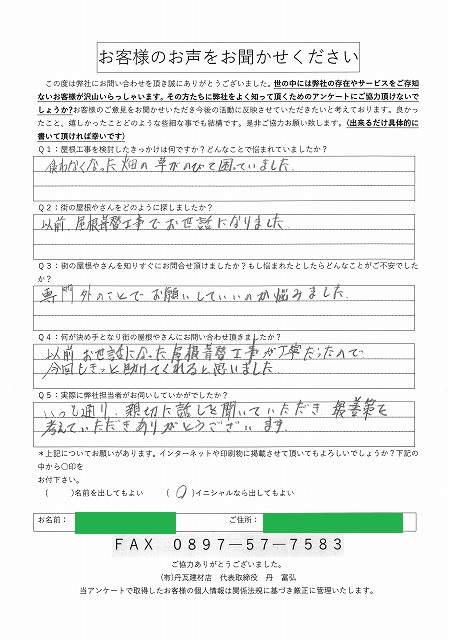 お客様のお声をお聞かせください
この度は弊社にお問い合わせを頂き誠にありがとうございました。世の中には弊社の存在やサービスをご存知
ないお客様が沢山いらっしゃいます。その方たちに弊社をよく知って頂くためのアンケートにご協力頂けないで
しょうか?お客様のご意見をお聞かせいただき今後の活動に反映させていただきたいと考えております。良かっ
たこと、嬉しかったことどのような些細な事でも結構です。是非ご協力お願い致します。(出来るだけ具体的に
書いて頂ければ幸いです)
Q1:屋根工事を検討したきっかけは何ですか?どんなことで悩まれていましたか?
使わなくなった畑の草がのびて困っていました.
Q2:街の屋根やさんをどのように探しましたか?
以前、屋根葺替工事でお世話になりました.
Q3:街の屋根やさんを知りすぐにお問合せ頂けましたか?もし悩まれたとしたらどんなことがご不安でした
か?
専門外のことでお願いしていいのか悩みました.
Q4:何が決め手となり街の屋根やさんにお問い合わせ頂きましたか?
以前お世話になった屋根葺替工事が丁寧だったので
今回もきっと助けてくれると思いました.
Q5:実際に弊社担当者がお伺いしていかがでしたか?
いつも通り、親切に話しを聞いていただき最善策を
考えていただきありがとうございます.
*上記についてお願いがあります。インターネットや印刷物に掲載させて頂いてもよろしいでしょうか?下記の
中から○印を
お付下さい。
( )名前を出してもよい (○)イニシャルなら出してもよい
お名前: ご住所:
FAX 0897-57-7583
ご協力ありがとうございました。
(有)丹瓦建材店 代表取締役 丹 富弘
当アンケートで取得したお客様の個人情報は関係法規に基づき厳正に管理いたします。